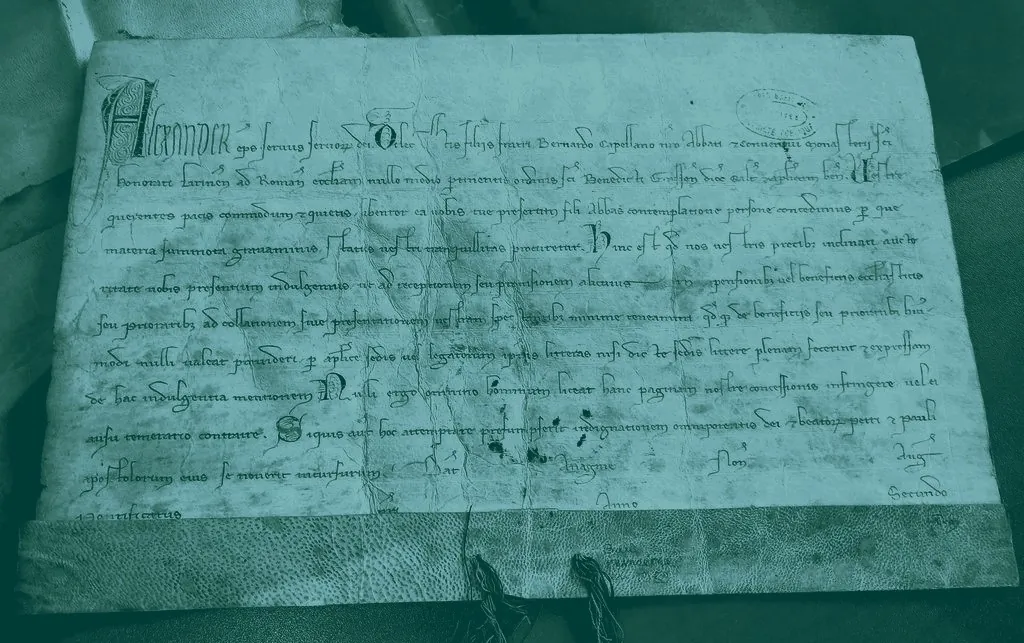 ALEXANDER eps servus servoꝝ dei. Dilectis filiis fratri Bernardo Capellano nro abbati et conventui monasterii sci
honorati ad Romam ecclam nullo medio pertinentis ordinis sci Benedicti dioc salt et aplicam ben. Vestre
querentes pacis commodum et quietis libenter ea vobis tue presertim fili abbas contemplatione persone concedimus per que
materia summota gravaminis, status vestri tranquillitas procuretur. Hinc est qd nos vestris precibus inclinati aucto
ritate vobis presentium indulgemus ut ad receptionem seu provisionem alicuius in pensionibz vel beneficiis ecclasticis
seu prioratibz ad collationem sive presentationem vestram minime teneamini qd de beneficiis seu prioratibz huius
modi nulli valeat provideri per aplice sedis vel legatorum ipsius litteras nisi dicte sedis littere plenam fecerint et expressam
de hac indulgentia mentionem Nulli ergo omnino hominum liceat hanc paginam nostre concessionis infringere vel ei
ausu temerario contraire. Siquis aut hoc attemptare presumpserit indignationem omnipotentis dei et beatoꝝ petri et pauli
apostolorum eius se noverit incursurum. Dat Anagnie Non Aug
Pontificatus Anno Secundo